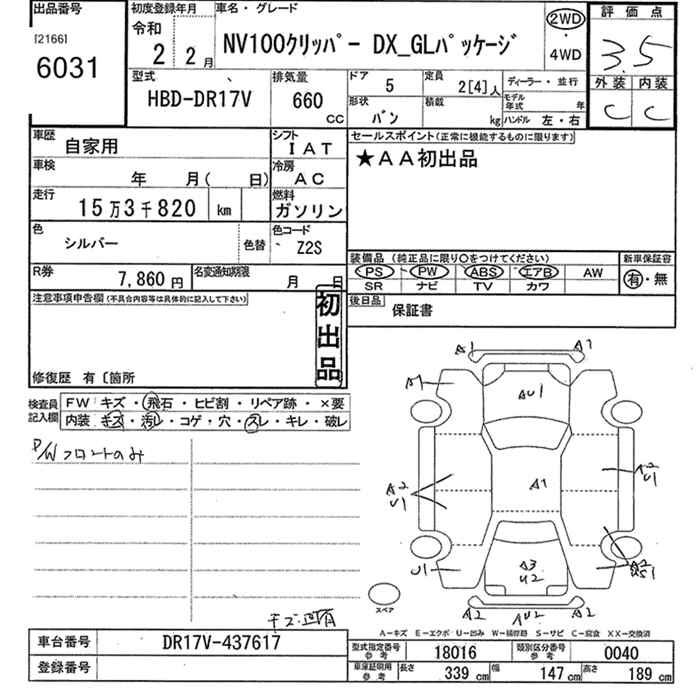 出品番号
[2166]
6031
初度登録年月
令和
2 2月
車名・グレード
NV100クリッパー DX_GLパッケージ
2WD
・
4WD
評価点
3.5
外装 内装
C C
型式
HBD-DR17V
排気量
660
cc
ドア 5
定員 2[4]人
形状 バン
積載 kg
ディーラー・並行
モデル年式 年
ハンドル 左・右
車歴 自家用
シフト IAT
車検 年 月( 日)
冷房 AC
走行 15万3千820 km
燃料 ガソリン
色 シルバー
色替
色コード Z2S
R券 7,860円
名変通知期限 月 日
セールスポイント(正常に機能するものに限ります)
★AA初出品
装備品 (純正品に限り○をつけてください)
PS PW ABS エアB AW
SR ナビ TV カワ
新車保証書
有・無
後日品 保証書
注意事項申告欄(不具合内容等は具体的に記入して下さい)
初出品
修復歴 有〔箇所
検査員記入欄
FW キズ・飛石・ヒビ割・リペア跡・×要
内装 キズ・汚レ・コゲ・穴・スレ・キレ・破レ
P/Wフロントのみ
キズ・凹有
A1 A1
A1
AU1
A2
U1
A1
A2
U1
U1
A3
U2
A2 AU2 A2
スペア
A-キズ E-エクボ U-凹み W-補修跡 S-サビ C-腐食 XX-交換済
車台番号 DR17V-437617
登録番号
型式指定番号 参考 18016
類別区分番号 参考 0040
車庫証明用 参考 長さ 339cm 幅 147cm 高さ 189cm